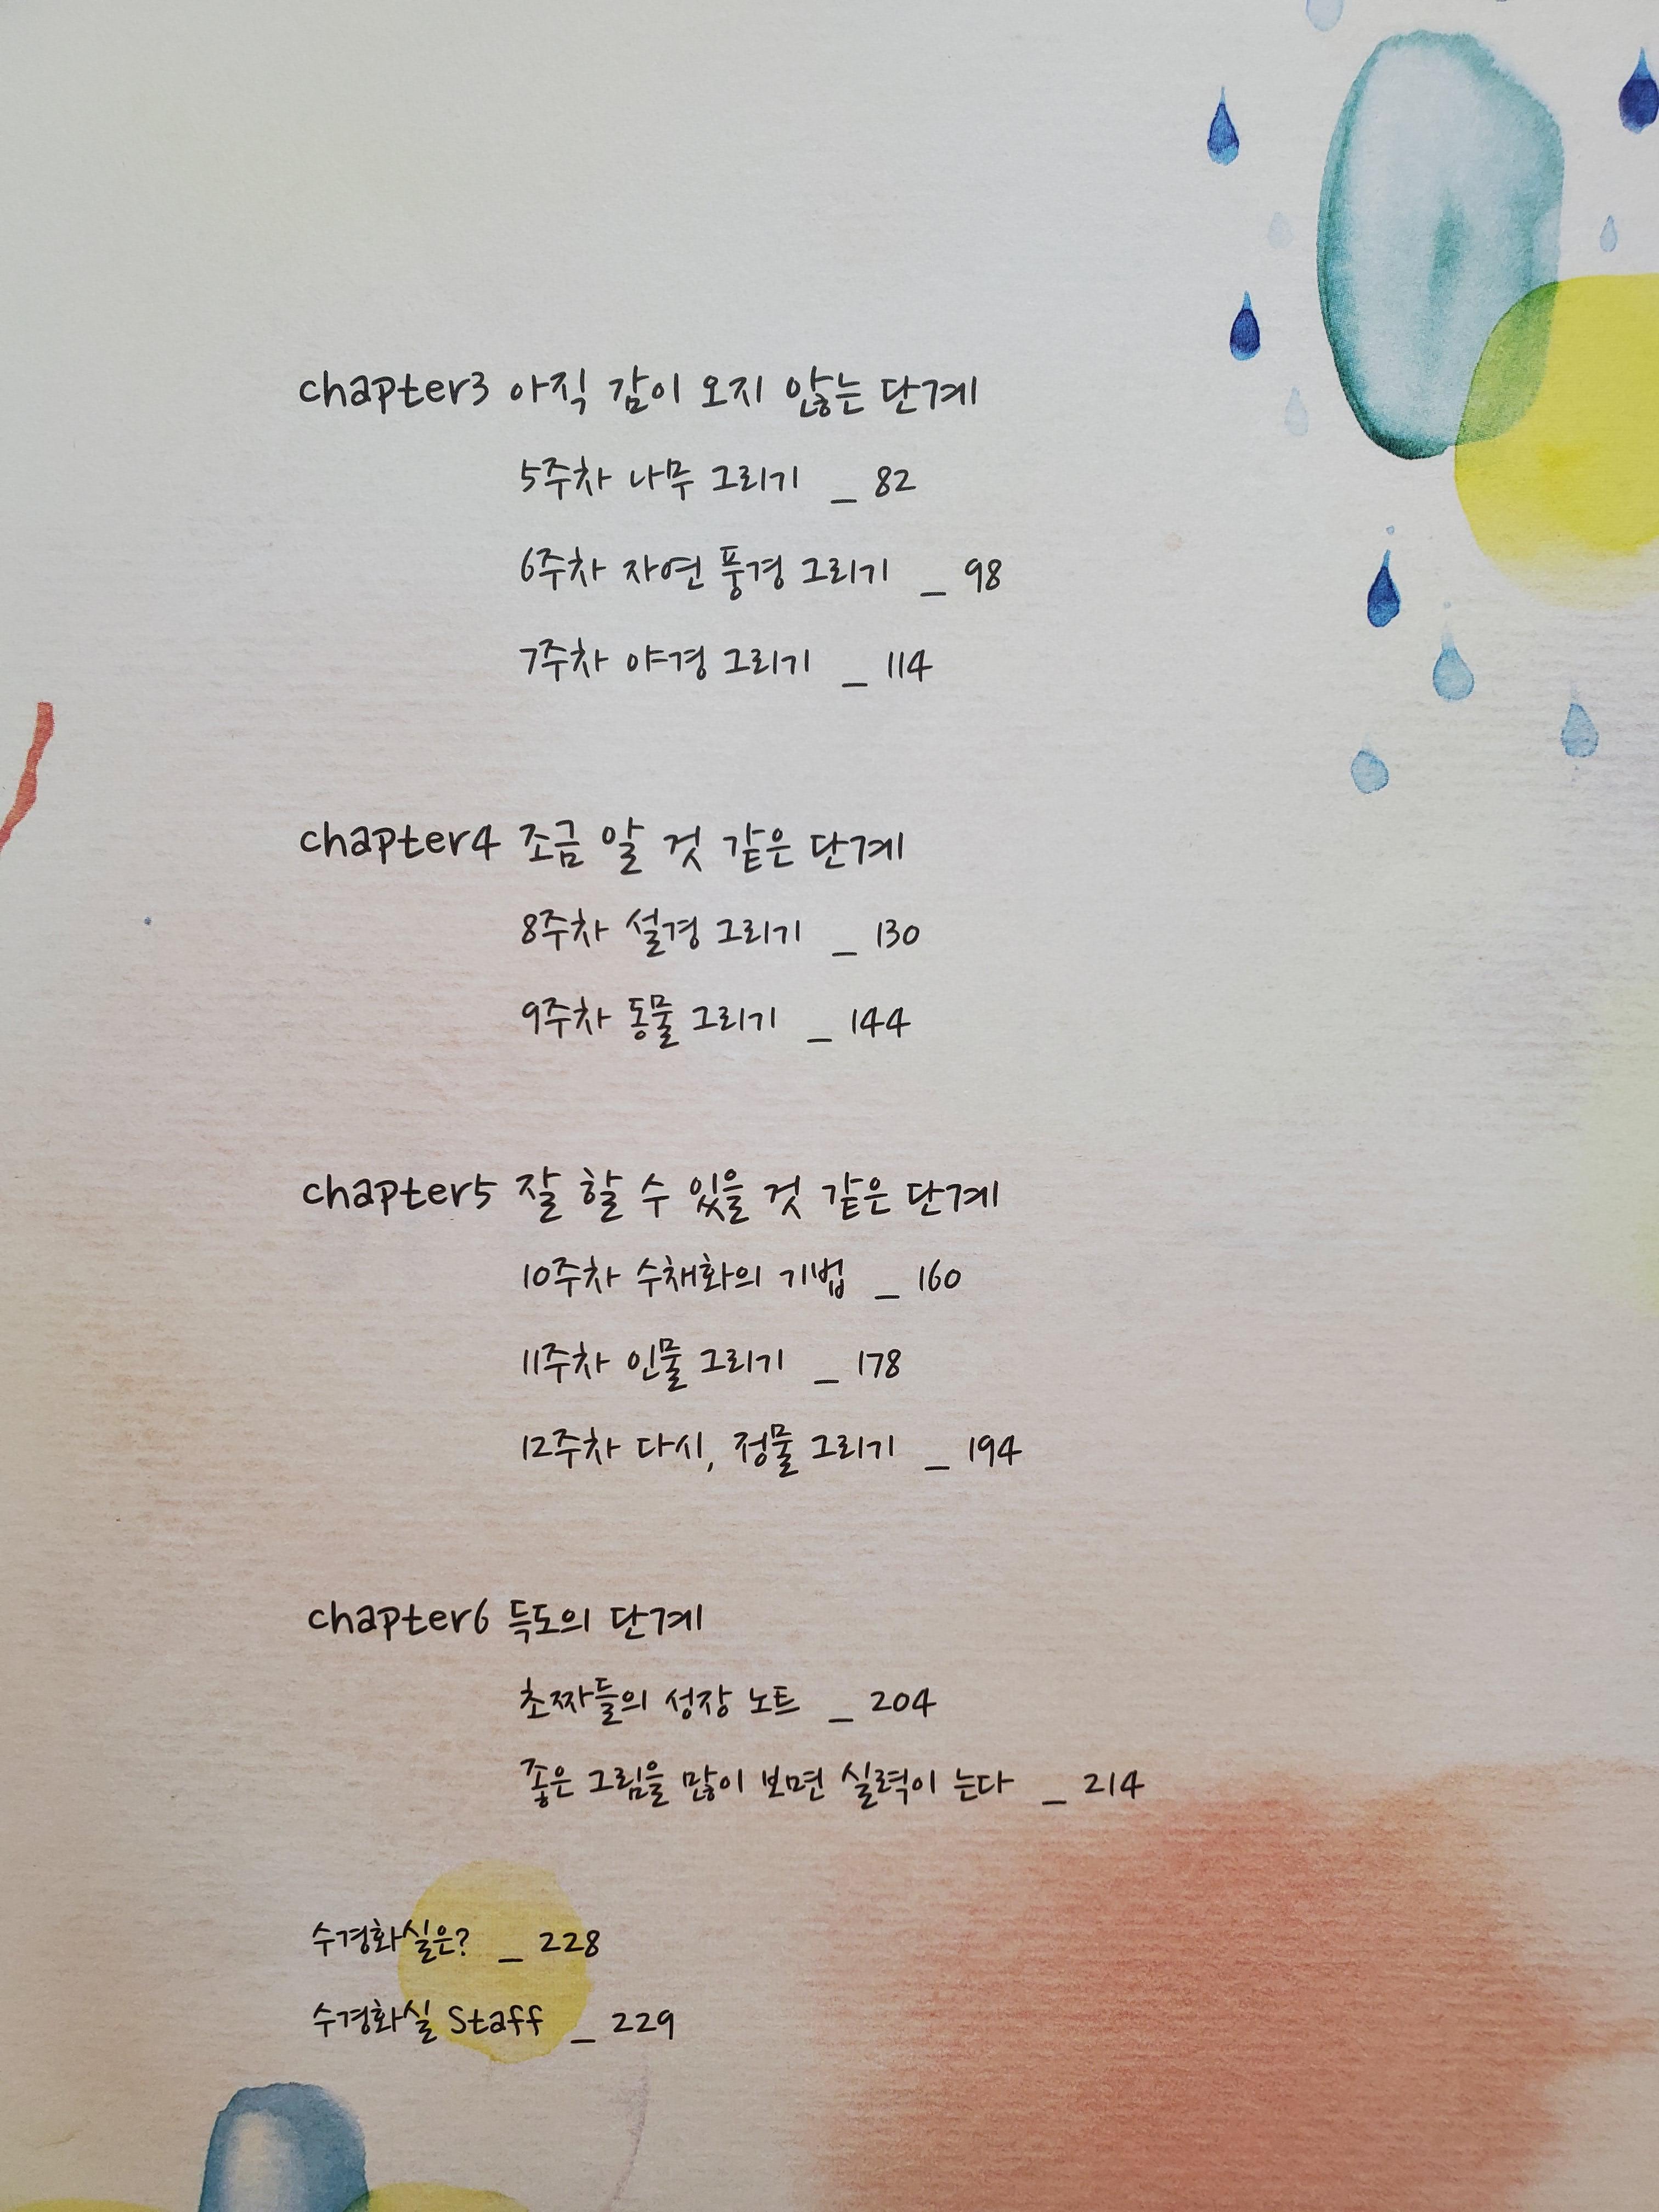 chapter3 아직 감이 오지 않는 단계
5주차 나무 그리기 _ 82
6주차 자연 풍경 그리기 _ 98
7주차 야경 그리기 _ 114
chapter4 조금 알 것 같은 단계
8주차 설경 그리기 _ 130
9주차 동물 그리기 _ 144
chapter5 잘 할 수 있을 것 같은 단계
10주차 수채화의 기법 _ 160
11주차 인물 그리기 _ 178
12주차 다시, 정물 그리기 _ 194
chapter6 득도의 단계
초짜들의 성장 노트 _ 204
좋은 그림을 많이 보면 실력이 는다 _ 214
수경화실은? _ 228
수경화실 Staff _ 229